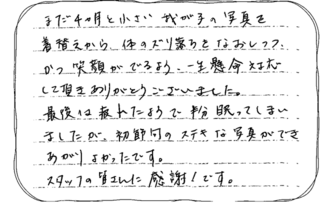 まだ4ヶ月と小さい我が子の写真を
着替えから、体のズリ落ちをなおしつつ、
かつ笑顔がでるよう、一生懸命対応
して頂きありがとうございました。
最後は疲れたようで半分眠ってしまい
ましたが、初節句のステキな写真ができ
あがりよかったです。
スタッフの皆さんに感謝!です。